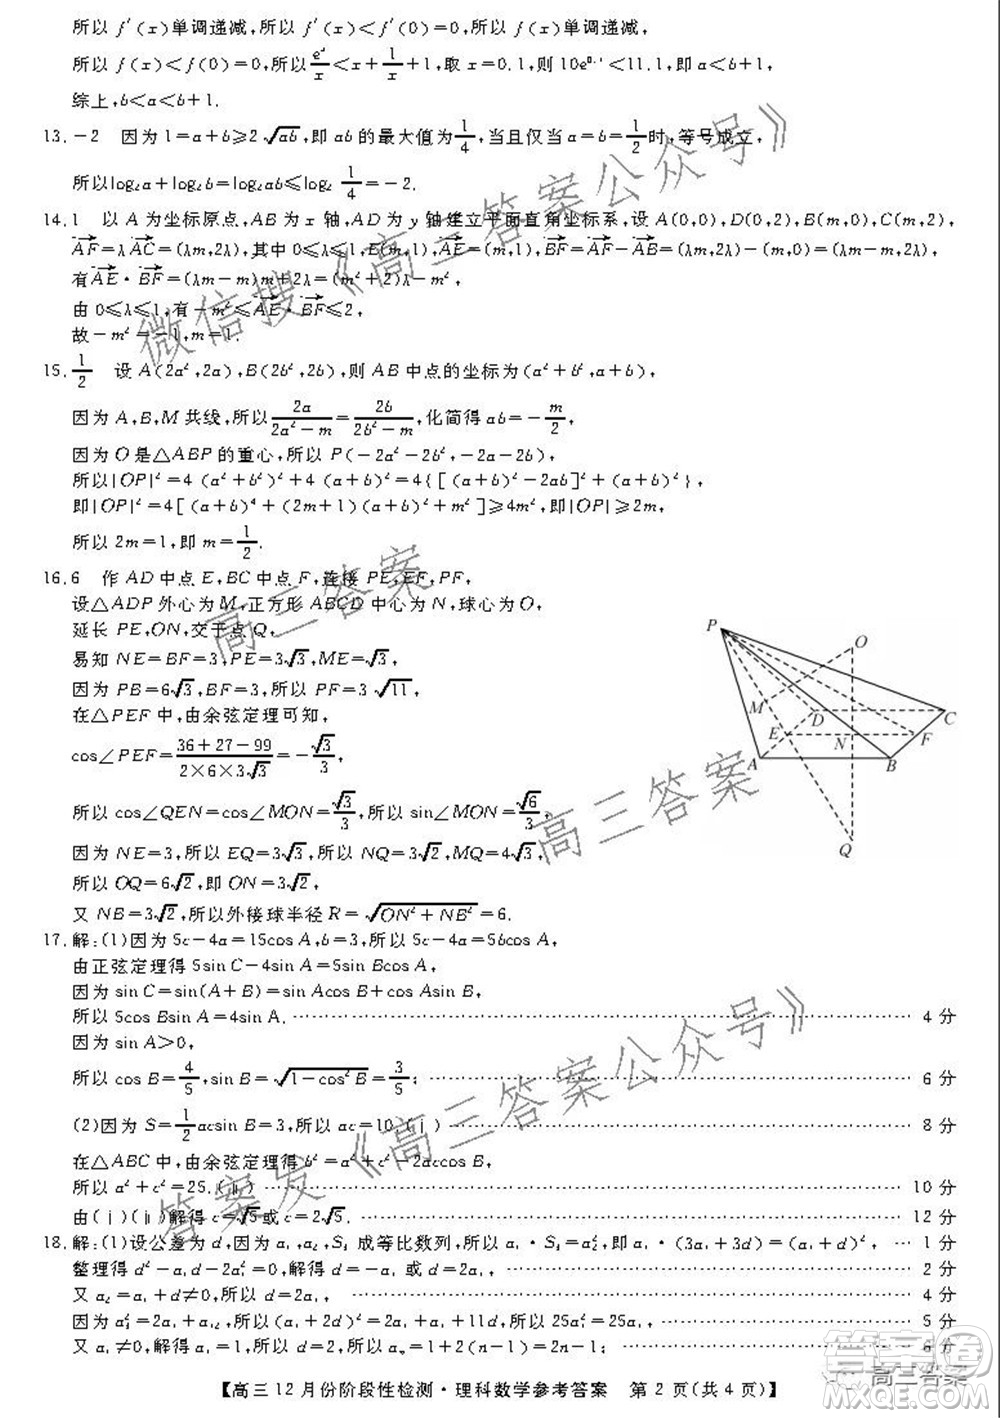 所以 f′(x)单调递减,所以 f′(x)<f′(0)=0,所以 f(x)单调递减,
所以 f(x)<f(0)=0,所以 e^x/x<x+1/x+1,取 x=0.1,则 10e^0.1<11.1,即 a<b,
综上,b<a<b+1.
13.-2 因为 1=a+b≥2√ab,即 ab 的最大值为1/4,当且仅当 a=b=1/2时,等号成立,
所以log₂a+log₂b=log₂ab≤log₂ 1/4=-2.
14.1 以 A 为坐标原点,AB 为 x 轴,AD 为 y 轴建立平面直角坐标系,设 A(0,0),D(0,2),B(m,0),C(m,2),
AF=λAC=(λm,2λ),其中 0≤λ≤1,E(m,1),AE=(m,1),BF=AF-AB=(λm,2λ)-(m,0)=(λm-m,2λ),
有AE·BF=(λm-m)m+2λ=(m²+2)λ-m²,
由 0≤λ≤1,有-m²≤AE·BF≤2,
故-m²=-1,m=1.
15.1/2 设 A(2a²,2a),B(2b²,2b),则 AB 中点的坐标为(a²+b²,a+b),
因为 A,B,M 共线,所以2a/(2a²-m)=2b/(2b²-m),化简得 ab=-m/2,
因为 O 是△ABP 的重心,所以 P(-2a²-2b²,-2a-2b),
所以|OP|²=4(a²+b²)²+4(a+b)²=4{[(a+b)²-2ab]²+(a+b)²},
即|OP|²=4[(a+b)⁴+(2m+1)(a+b)²+m²]≥4m²,即|OP|≥2m,
所以 2m=1,即 m=1/2.
16.6 作 AD 中点 E,BC 中点 F,连接 PE,EF,PF,
设△ADP 外心为 M,正方形 ABCD 中心为 N,球心为 O,
延长 PE,ON,交于点 Q,
易知 NE=BF=3,PE=3√3,ME=√3,
因为 PB=6√3,所以 PF=3√11,
在△PEF 中,由余弦定理可知,
cos∠PEF=(36+27-99)/(2×6×3√3)=-√3/3,
所以 cos∠QEN=cos∠MON=√3/3,所以 sin∠MON=√6/3,
因为 NE=3,所以 EQ=3√3,所以 NQ=3√2,MQ=4√3,
所以 OQ=6√2,即 ON=3√2,
又 NB=3√2,所以外接球半径 R=√(ON²+NB²)=6.
P
O
M
D
C
E
N
F
A
B
Q
17.解:(1)因为 5c-4a=15cos A,b=3,所以 5c-4a=5bcos A,
由正弦定理得 5sin C-4sin A=5sin Bcos A,
因为 sin C=sin(A+B)=sin Acos B+cos Asin B,
所以 5cos Bsin A=4sin A. 4 分
因为 sin A>0,
所以 cos B=4/5,sin B=√(1-cos²B)=3/5; 6 分
(2)因为 S=1/2acsin B=3,所以 ac=10,(ⅰ) 8 分
在△ABC 中,由余弦定理得 b²=a²+c²-2accos B,
所以 a²+c²=25.(ⅱ) 10 分
由(ⅰ)(ⅱ)解得 c=√5或 c=2√5. 12 分
18.解:(1)设公差为 d,因为 a₁,a₂,S₃ 成等比数列,所以 a₁·S₃=a₂²,即 a₁·(3a₁+3d)=(a₁+d)², … 1 分
整理得 d²-a₁d-2a₁²=0,解得 d=-a₁ 或 d=2a₁, 2 分
又 a₂=a₁+d≠0,所以 d=2a₁. 4 分
因为 a₃²=2a₁+a₁₂,所以(a₁+2d)²=2a₁+a₁+11d,所以 25a₁²=25a₁, 5 分
又 a₁≠0,解得 a₁=1,所以 d=2,所以 aₙ=1+2(n-1)=2n-1; 6 分
【高三 12 月份阶段性检测·理科数学参考答案 第 2 页(共 4 页)】
微信搜《高三答案公众号》
高三答案
高三答案
答案发《高三答案公众号》
高三答案
答案圈